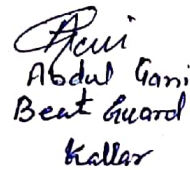 Abdul Gani
Beat Guard
Kallar